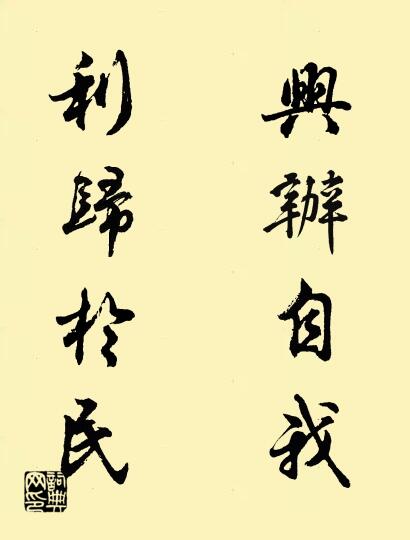 興辦自我
利歸於民
詞典网印